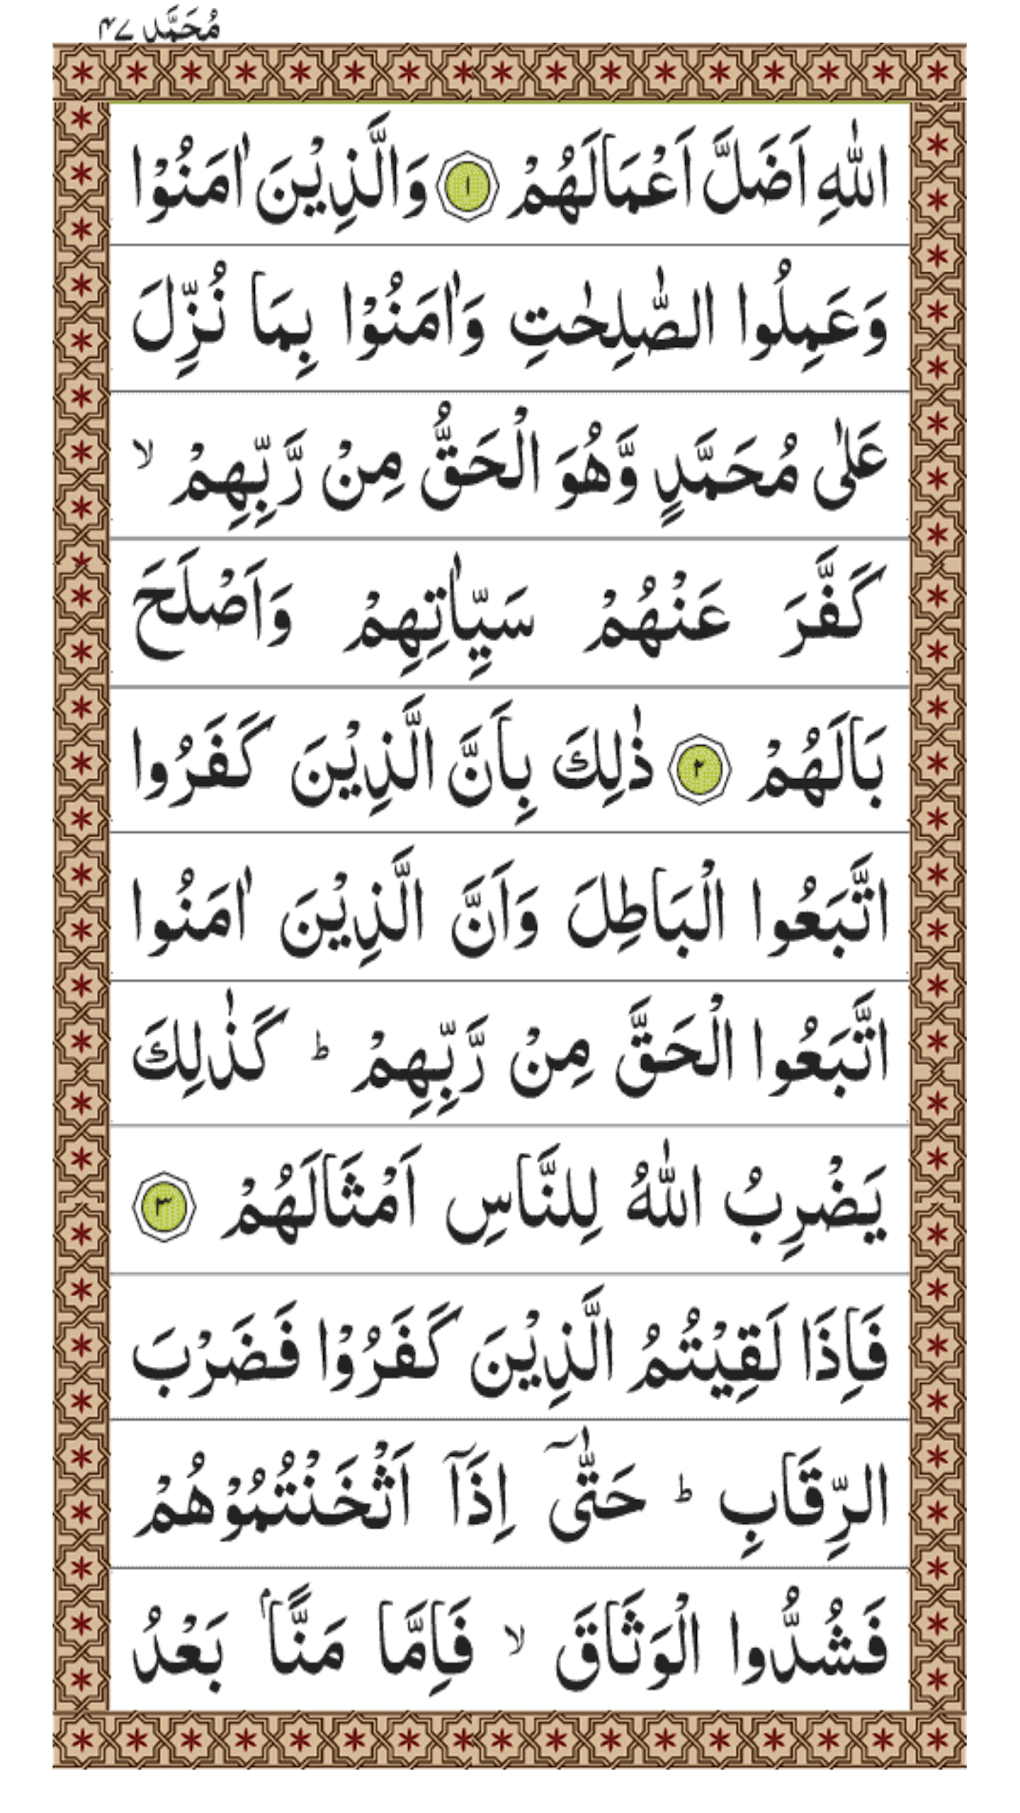 مُحَمَّد ٤٧
اللّٰهِ اَضَلَّ اَعْمَالَهُمْ ١ وَالَّذِيْنَ اٰمَنُوْا
وَعَمِلُوا الصّٰلِحٰتِ وَاٰمَنُوْا بِمَا نُزِّلَ
عَلٰى مُحَمَّدٍ وَّهُوَ الْحَقُّ مِنْ رَّبِّهِمْ ۙ
كَفَّرَ عَنْهُمْ سَيِّاٰتِهِمْ وَاَصْلَحَ
بَالَهُمْ ٢ ذٰلِكَ بِاَنَّ الَّذِيْنَ كَفَرُوا
اتَّبَعُوا الْبَاطِلَ وَاَنَّ الَّذِيْنَ اٰمَنُوا
اتَّبَعُوا الْحَقَّ مِنْ رَّبِّهِمْ ؕ كَذٰلِكَ
يَضْرِبُ اللّٰهُ لِلنَّاسِ اَمْثَالَهُمْ ٣
فَاِذَا لَقِيْتُمُ الَّذِيْنَ كَفَرُوْا فَضَرْبَ
الرِّقَابِ ؕ حَتّٰىٓ اِذَآ اَثْخَنْتُمُوْهُمْ
فَشُدُّوا الْوَثَاقَ ۙ فَاِمَّا مَنًّاۢ بَعْدُ